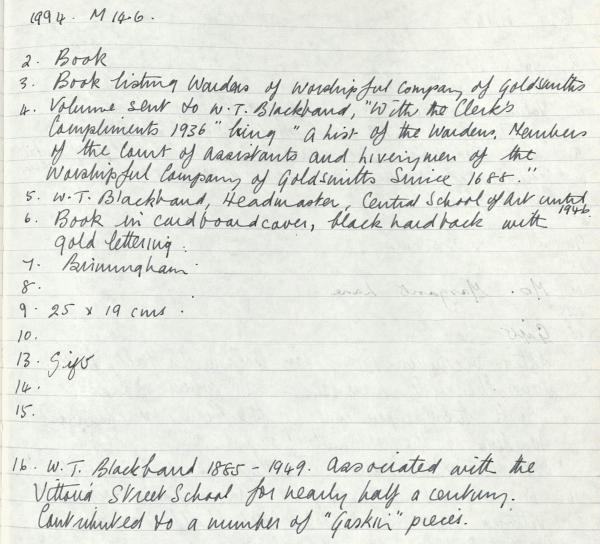 1994. M 146.
2. Book
3. Book listing Wardens of Worshipful Company of Goldsmiths
4. Volume sent to W.T. Blackband, "With the Clerks
Compliments 1936" being "A List of the Wardens, Members
of the Court of Assistants and Liverymen of the
Worshipful Company of Goldsmiths Since 1688."
5. W.T. Blackband, Headmaster, Central School of Art until
1946
6. Book in cardboard cover, black hardback with
gold lettering.
7. Birmingham.
8.
9. 25 x 19 cms.
10.
13. Gift
14.
15.
16. W.T. Blackband 1885 - 1949. Associated with the
Vittoria Street School for nearly half a century.
Contributed to a number of "Gaskin" pieces.